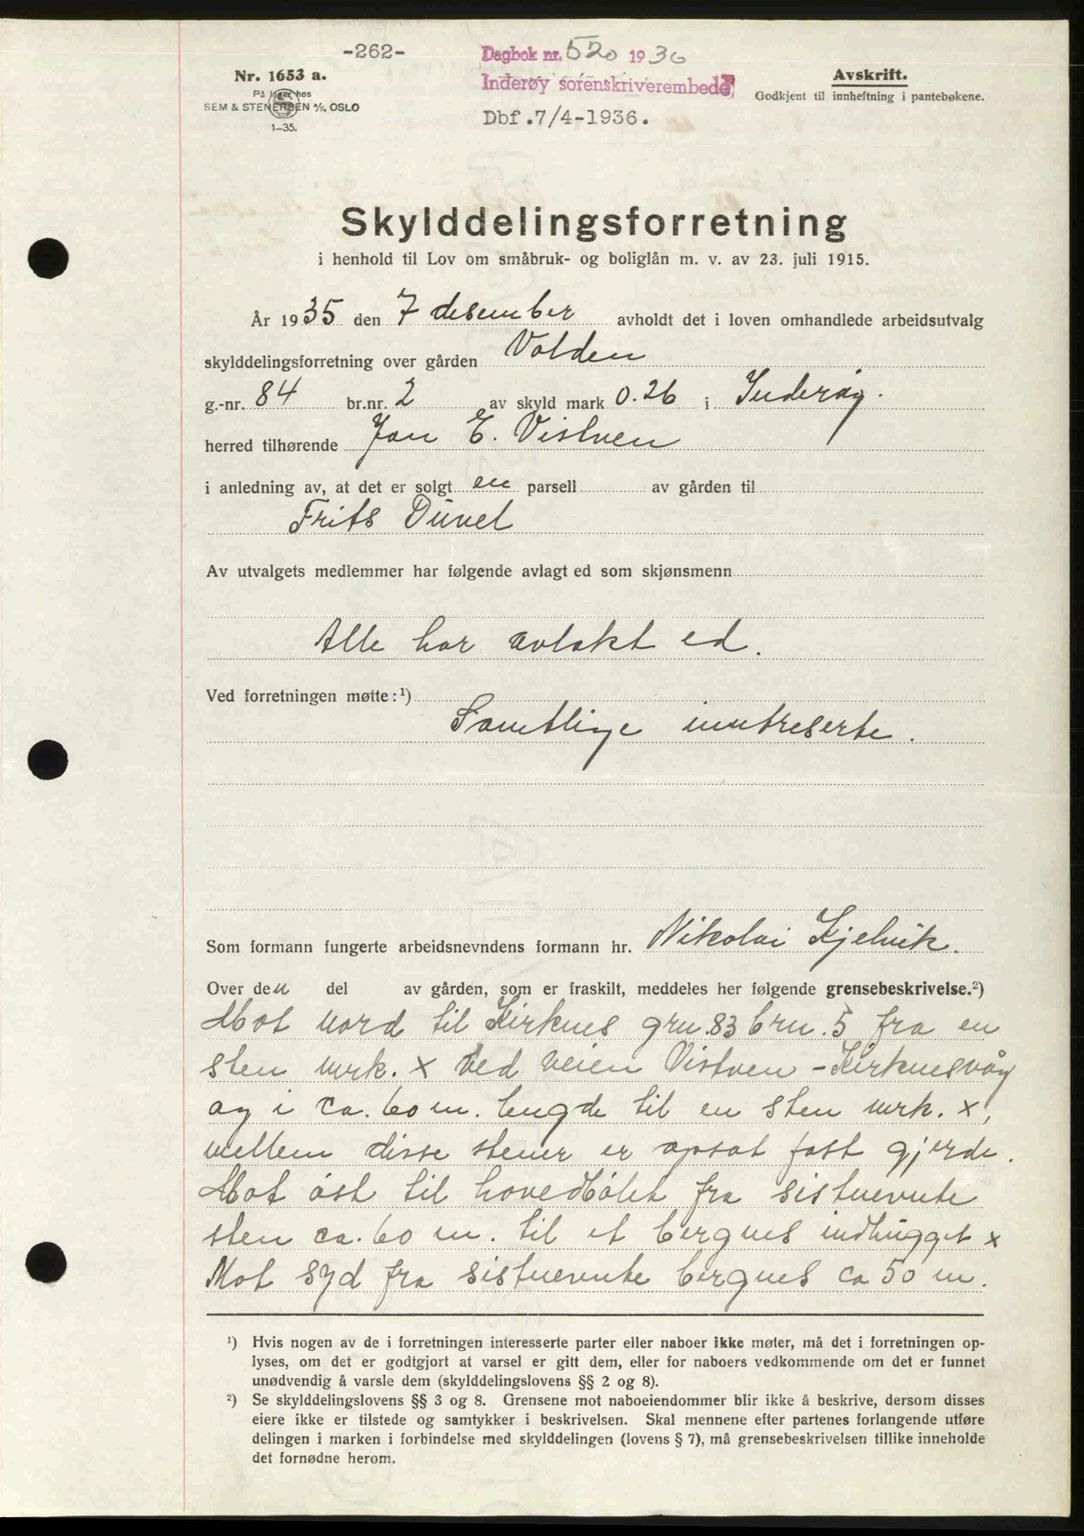 -262-
Dagbok nr. 520 1936
Inderøy sorenskriverembede
Dbf.7/4-1936.
Nr. 1653 a.
På lager hos
SEM & STENERSEN A/S, OSLO
1-35.
Avskrift.
Godkjent til innheftning i pantebøkene.
Skylddelingsforretning
i henhold til Lov om småbruk- og boliglån m. v. av 23. juli 1915.
År 1935 den 7 desember avholdt det i loven omhandlede arbeidsutvalg
skylddelingsforretning over gården Volden
g.-nr. 84 br.nr. 2 av skyld mark 0.26 i Inderøy.
herred tilhørende Jon E. Vistven
i anledning av, at det er solgt en parsell av gården til
Frits Düvel
Av utvalgets medlemmer har følgende avlagt ed som skjønsmenn
Alle har avlakt ed.
Ved forretningen møtte:¹)
Samtlige inntreserte.
Som formann fungerte arbeidsnevndens formann hr. Nikolai Kjelvik.
Over den del av gården, som er fraskilt, meddeles her følgende grensebeskrivelse.²)
Mot nord til Kirknes grn. 83 brn. 5 fra en
sten mrk. x ved veien Vistven - Kirknesvåg
og i ca. 60 m. lengde til en sten mrk. x,
mellem disse stener er opsat fast gjerde.
Mot øst til hovedbølet fra sistnevnte
sten ca. 60 m. til et bergnes indhugget x
Mot syd fra sistnevnte bergnes ca 50 m.
¹) Hvis nogen av de i forretningen interesserte parter eller naboer ikke møter, må det i forretningen op-
lyses, om det er godtgjort at varsel er gitt dem, eller for naboers vedkommende om det er funnet
unødvendig å varsle dem (skylddelingslovens §§ 2 og 8).
²) Se skylddelingslovens §§ 3 og 8. Grensene mot naboeiendommer blir ikke å beskrive, dersom disses
eiere ikke er tilstede og samtykker i beskrivelsen. Skal mennene efter partenes forlangende utføre
delingen i marken i forbindelse med skylddelingen (lovens § 7), må grensebeskrivelsen tillike inneholde
det fornødne herom.